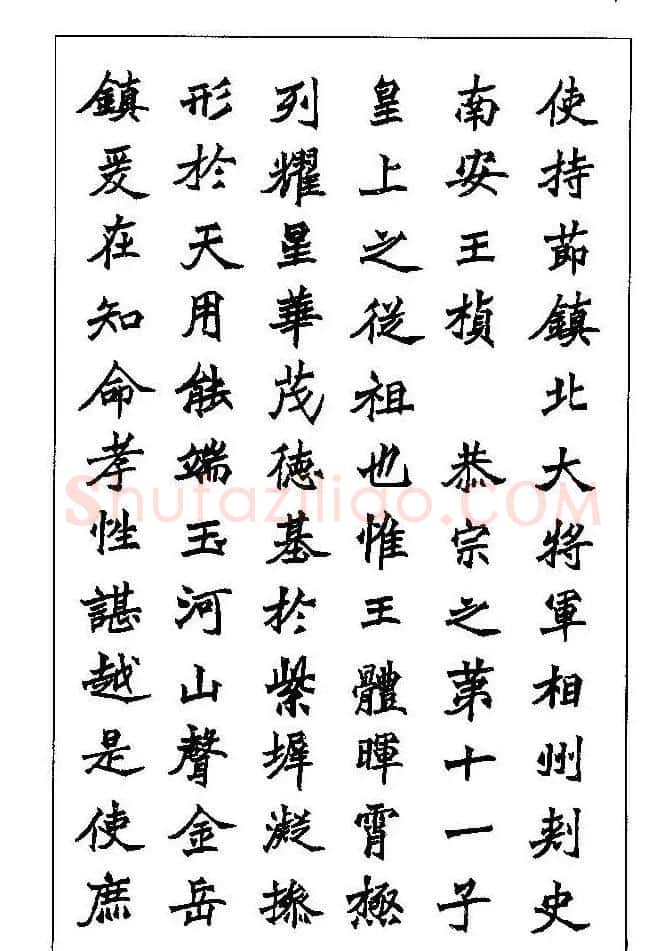 使持莭鎮北大將軍相州刾史
南安王楨 恭宗之苐十一子
皇上之從祖也惟王體暉霄極
列耀星華茂德基於紫墀凝操
形於天用能端玉河山聲金岳
鎮爰在知命孝性諶越是使庶
Shufaziliao.COM